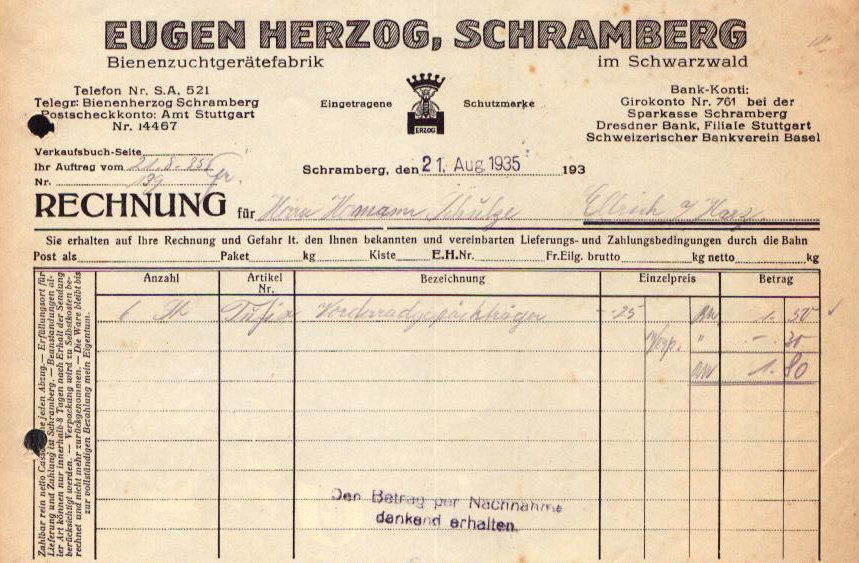 EUGEN HERZOG, SCHRAMBERG
Bienenzuchtgerätefabrik im Schwarzwald
Telefon Nr. S.A. 521
Telegr: Bienenherzog Schramberg
Postscheckkonto: Amt Stuttgart
Nr. 14467
Eingetragene Schutzmarke
HERZOG
Bank-Konti:
Girokonto Nr. 761 bei der
Sparkasse Schramberg
Dresdner Bank, Filiale Stuttgart
Schweizerischer Bankverein Basel
Verkaufsbuch-Seite
Ihr Auftrag vom 21.8.35
Nr. 139
Schramberg, den 21. Aug. 1935 193
RECHNUNG für Herrn Hermann Schulze Ellrich a/Harz
Sie erhalten auf Ihre Rechnung und Gefahr lt. den Ihnen bekannten und vereinbarten Lieferungs- und Zahlungsbedingungen durch die Bahn
Post als Paket kg Kiste E.H.Nr. Fr.Eilg. brutto kg netto kg
Anzahl Artikel Nr. Bezeichnung Einzelpreis Betrag
6 St Vorderradgepäckträger -.25 1. 50
Verp. " -. 30
1. 80
Den Betrag per Nachnahme
dankend erhalten.
Zahlbar rein netto Cassa ohne jeden Abzug. — Erfüllungsort für
Lieferung und Zahlung ist Schramberg. — Beanstandungen al-
ler Art können nur innerhalb 8 Tagen nach Erhalt der Sendung
berücksichtigt werden. — Verpackung wird zu Selbstkosten be-
rechnet und nicht mehr zurückgenommen. — Die Ware bleibt bis
zur vollständigen Bezahlung mein Eigentum.